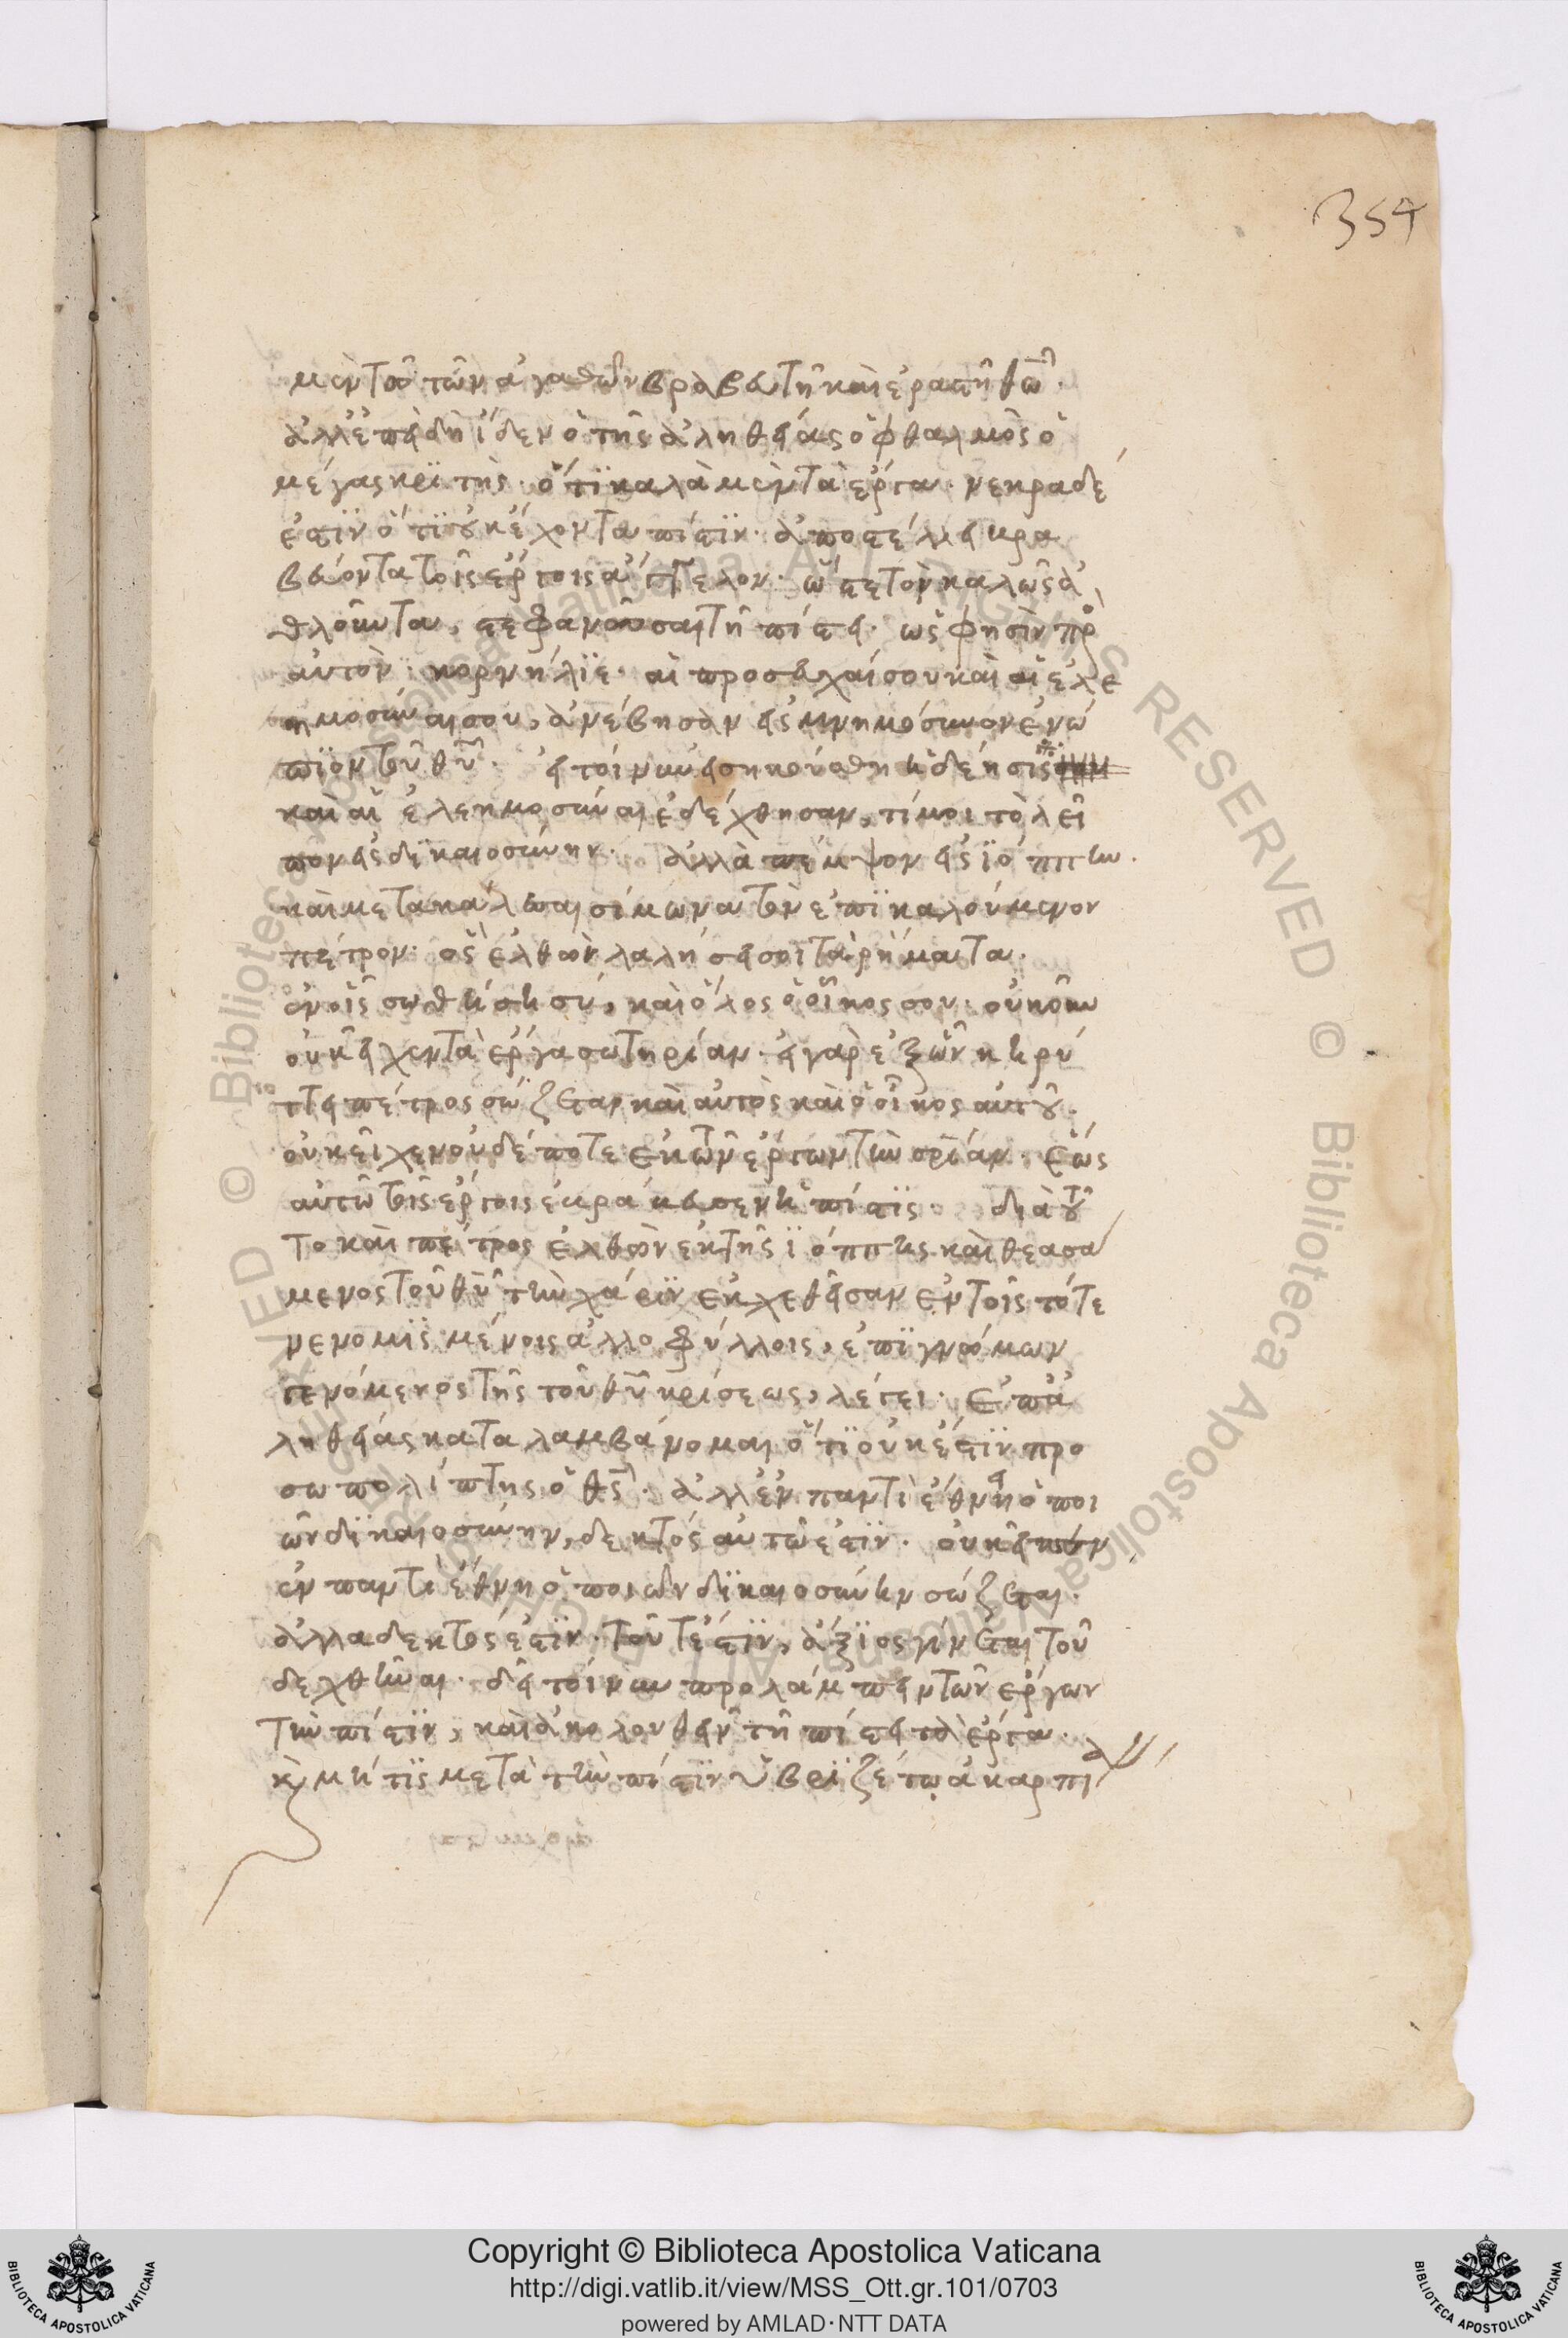 354
μὲν τῷ τῶν ἀγαθῶν βραβευτῇ καὶ ἐραστῇ θῶ.
ἀλλ' ἐπειδὴ ἴδεν ὁ τῆς ἀληθείας ὀφθαλμὸς ὁ
μέγας κριτής. ὅτι καλὰ μὲν τὰ ἔργα. νεκρα δέ
ἐστιν ὅτι οὐκ ἔχοντα πίστιν. ἀποστέλλει βρα
βεύοντα τοῖς ἔργοις ἄγγελον. ὥστε τὸν καλῶς ἀ
θλοῦντα, στεφανοῦσαι τῇ πίστει. ὡς φησὶν πρ
αὐτὸν κορνήλιε. αἱ προσευχαί σου καὶ αἱ ἐλε
ημοσύναι σου, ἀνέβησαν εἰς μνημόσυνον ἐνώ
πιον τοῦ θῦ. εἰ τοίνυν εἰσηκούσθη ἡ δέησις
καὶ αἱ ἐλεημοσύναι ἐδέχθησαν, τί μοι τὸ λεῖ
πον εἰς δικαιοσύνην. ἀλλὰ πέμψον εἰς ἰόππην.
καὶ μετακάλεσαι σίμωνα τὸν ἐπικαλούμενον
πέτρον. ὃς ἐλθὼν λαλήσει σοι τὰ ῥήματα.
ἐν οἷς σωθήσῃ σύ, καὶ ὅλος ὁ οἶκος σου. οὐκοῦν
οὐκ εἶχεν τὰ ἔργα σωτηρίαν. εἰ γὰρ ἐξ ὧν κηρύ
ττει πέτρος σώζεται καὶ αὐτὸς καὶ ὁ οἶκος αὐτοῦ.
οὐκ εἶχεν οὐδέποτε ἐκ τῶν ἔργων τὴν σρίαν. ἕως
αὐτῷ τοῖς ἔργοις ἐβράβευσεν ἡ πίστις. διὰ τοῦ
το καὶ πέτρος ἐλθὼν ἐκ τῆς ἰόππης καὶ θεασά
μενος τοῦ θῦ τὴν χάριν ἐκχεθεῖσαν ἐν τοῖς τότε
νενομισμένοις ἀλλοφύλλοις, ἐπιγνώμων
γενόμενος τῆς τοῦ θῦ κρίσεως, λέγει. ἐπ' ἀ
ληθείας καταλαμβάνομαι ὅτι οὐκ ἔστιν προ
σωπολίπτης ὁ θς. ἀλλ' ἐν παντὶ ἔθνει ὁ ποι
ῶν δικαιοσύνην, δεκτός αὐτῷ ἐστιν. οὐκ εἶπεν
ἐν παντὶ ἔθνη ὁ ποιῶν δικαιοσύνην σώζεται.
ἀλλὰ δεκτός ἐστιν. τοῦτ' ἔστιν, ἄξιος γίνεται τοῦ
δεχθῆναι. δεῖ τοίνυν προλάμπειν τῶν ἔργων
τὴν πίστιν, καὶ ἀκολουθεῖν τῇ πίστει τὰ ἔργα.
κ μή τις μετὰ τὴν πίστιν ὑβριζέτω ἀκαρπί
© Biblioteca Apostolica Vaticana ALL RIGHTS RESERVED
Copyright © Biblioteca Apostolica Vaticana
http://digi.vatlib.it/view/MSS_Ott.gr.101/0703
powered by AMLAD·NTT DATA
BIBLIOTECA APOSTOLICA VATICANA
BIBLIOTECA APOSTOLICA VATICANA